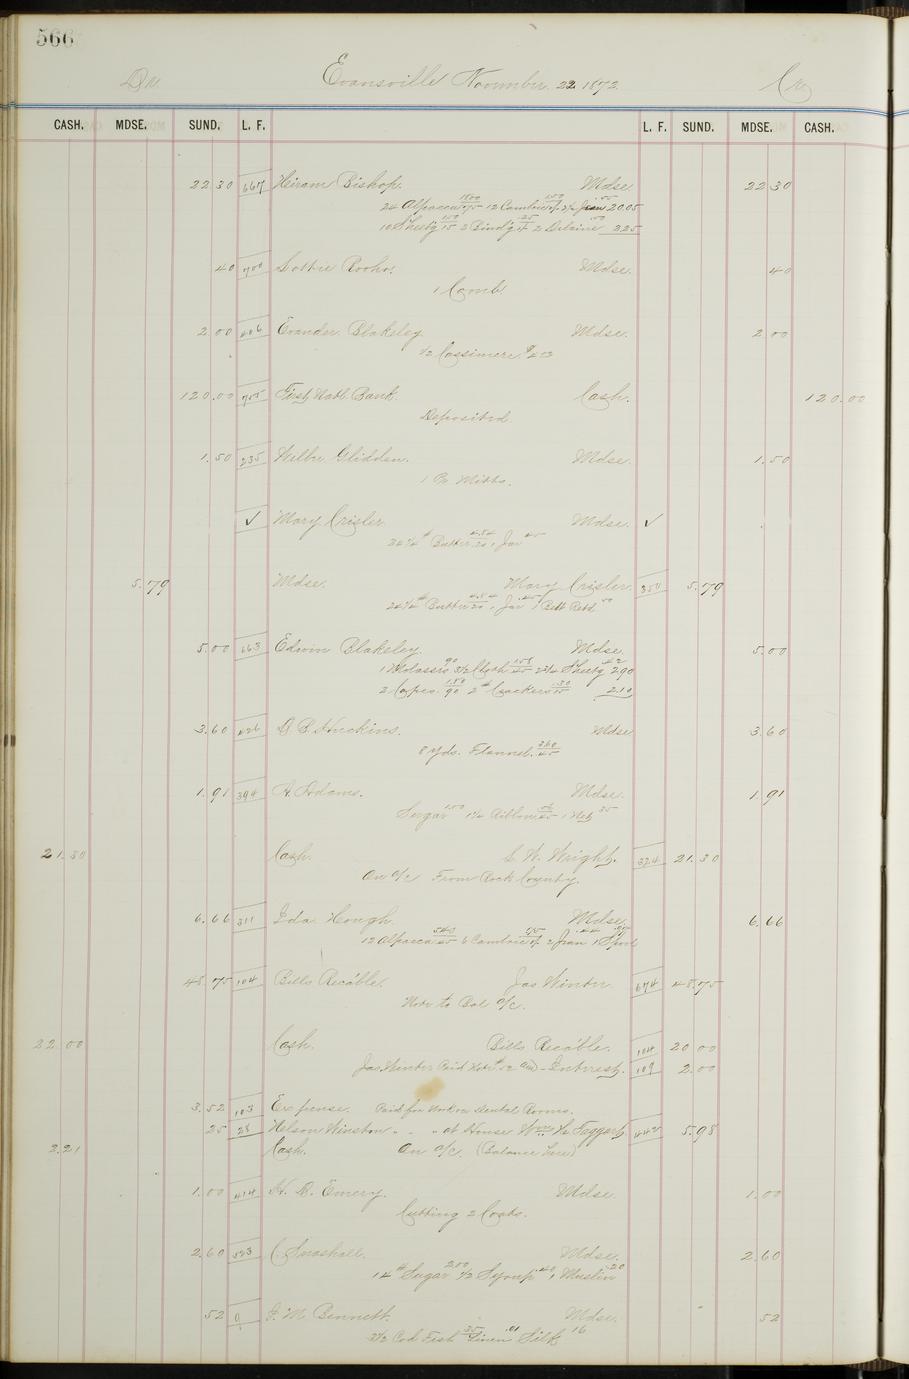 566
Dr. Evansville November 22 1872 Cr
CASH. MDSE. SUND. L. F. L. F. SUND. MDSE. CASH.
22 30 667 Hiram Bishop. Mdse 22 30
24 Alpacca 1800/75 12 Cambric 1.50 2½ Jean .55 20.05
10 Sheetg 1.50/15 2 Bindg .25 2 Delaine .50 2.25
40 700 Lottie Mdse. 40
1 Comb
2 00 406 Evander Blakeley Mdse. 2 00
½ Cassimere
120.00 755 First Natl. Bank. Cash. 120.00
Deposited
1.50 235 Welbe Glidden. Mdse. 1.50
1 Pr Mitts.
✓ Mary Crisler Mdse. ✓
24¼ # Butter 4.84/20 1 Jar 45
5.79 Mdse. Mary Crisler 350 5.79
24¼ # Butter 4.84/20 1 Jar .45 1 Belt Retd 50
5.00 663 Edwin Blakeley. Mdse. 5.00
1 Molasses 90 3½ Cloth 1.58/45 2¾ Sheetg 42 2.90
2 1.80/90 2 # Crackers .30/15 2.10
3.60 426 Huckins. Mdse 3.60
8 yds. Flannel. 3.60/45
1.91 394 H. Adams. Mdse. 1.91
Sugar 1.00 1¼ Ribbon 1 Net 35
21.30 Cash. C. W. Wright. 324 21.30
On a/c From Rock County.
6.66 311 Ida Hough. Mdse. 6.66
12 Alpacca 540/45 6 Cambric 2 Jean .44 1 Spool
48.75 104 Bills Recable. Jas Winter 674 48.75
Note to Bal a/c.
22.00 Cash. Bills Recable. 104 20 00
Jas Winter Paid Note and Interest. 109 2.00
3.52 103 Expense. Paid for Work on Dental Rooms.
25 28 Nelson Winston " " " at House Wm H. Taggart 442 5.98
2.21 Cash. On a/c. (Balance Due)
1.00 414 H. Emery. Mdse. 1.00
Cutting 2 Coats.
2.60 523 C. Snashall. Mdse. 2.60
14 # Sugar 2.00 ½ Syrup .40 1 Muslin .20
52 0 M Bennett. Mdse. 52
3½ Cod Fish 35 Linen .01 Silk 16